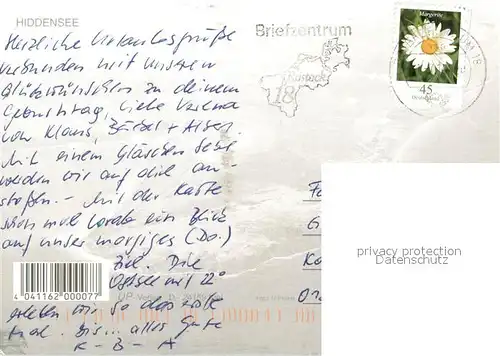 HIDDENSEE
Herzliche Urlaubsgrüße
verbunden mit unseren
Glückwünschen zu deinem
Geburtstag, liebe Verena
von Klaus, Bärbel +
Mit einem Gläschen Sekt
werden wir auf dich an-
stoßen. - Mit der Karte
schon mal vorab ein Blick
auf unser morgiges (Do.)
Ziel. Die
Ostsee mit 12°
erleben wir so das erste
mal. Bis... alles Gute
K - B - A
4 041162 000077
Briefzentrum
18
Margerite
45
Deutschland
privacy protection
Datenschutz